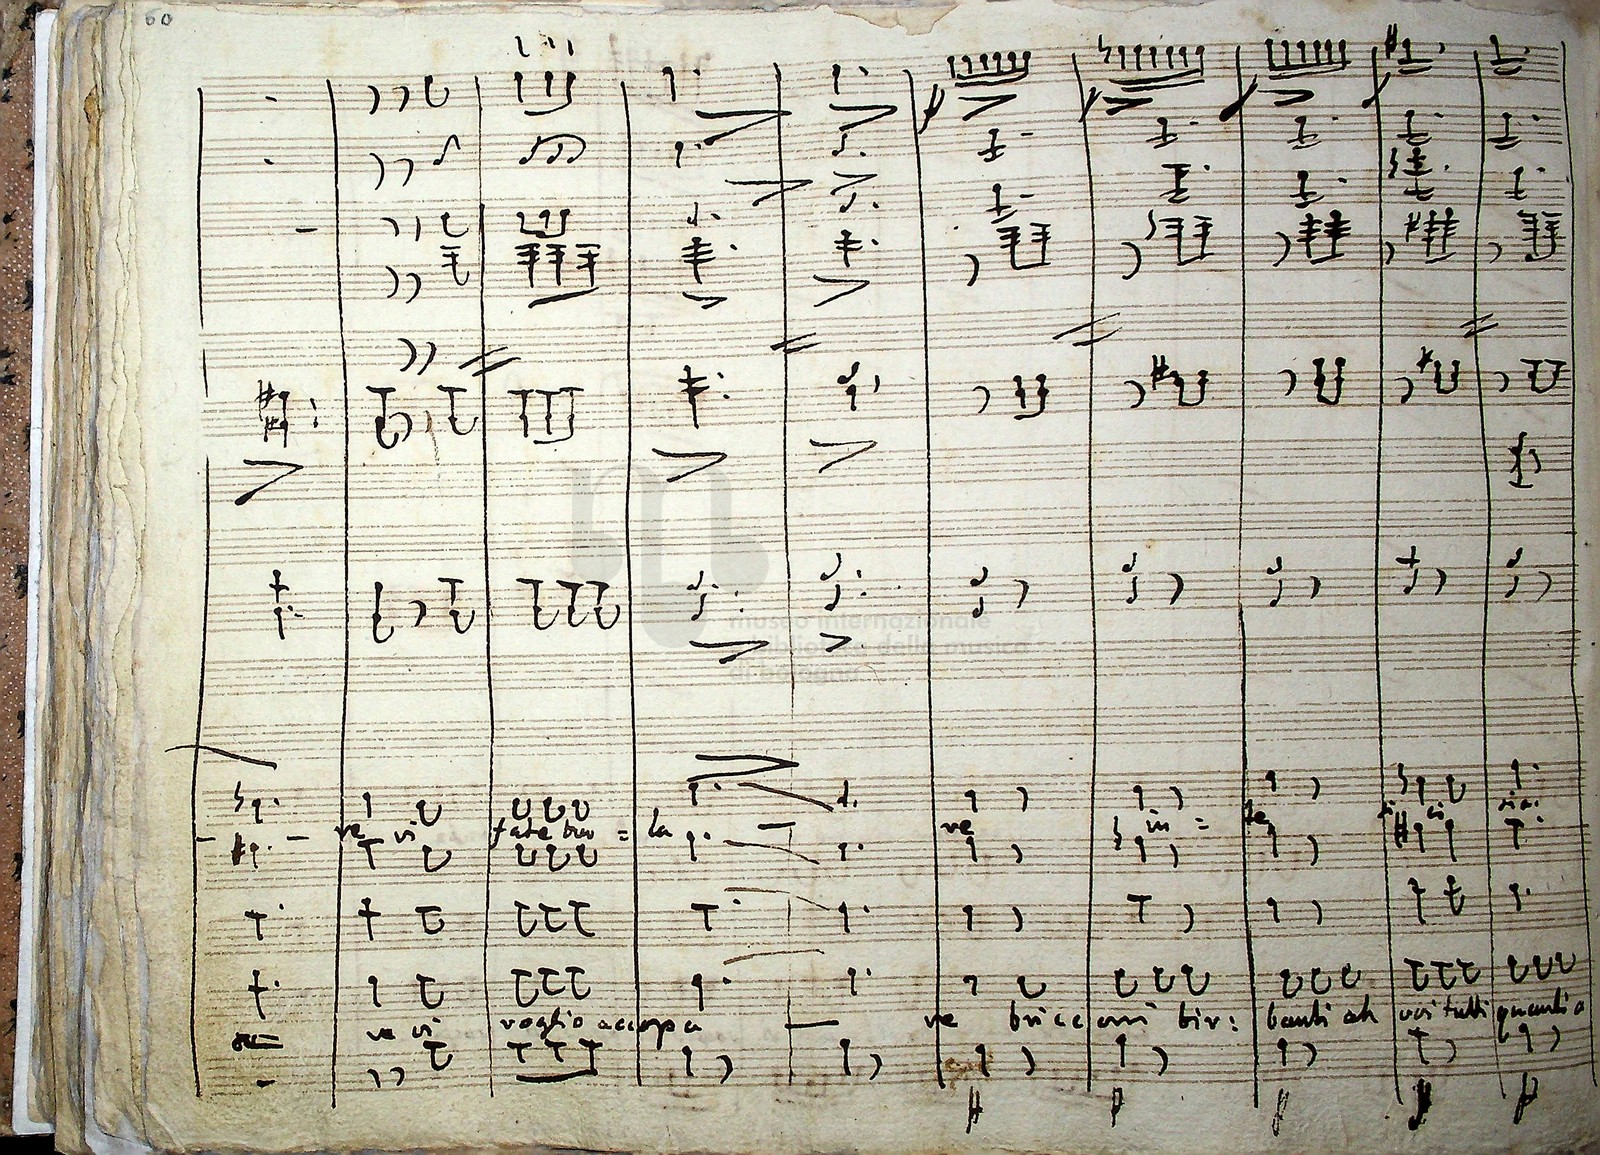 60
museo internazionale
e biblioteca della musica
di bologna
ve vi fate bur = la ve in = te
ve vi voglio accopa ve bricconi bir: banti ah voi tutti quanti a